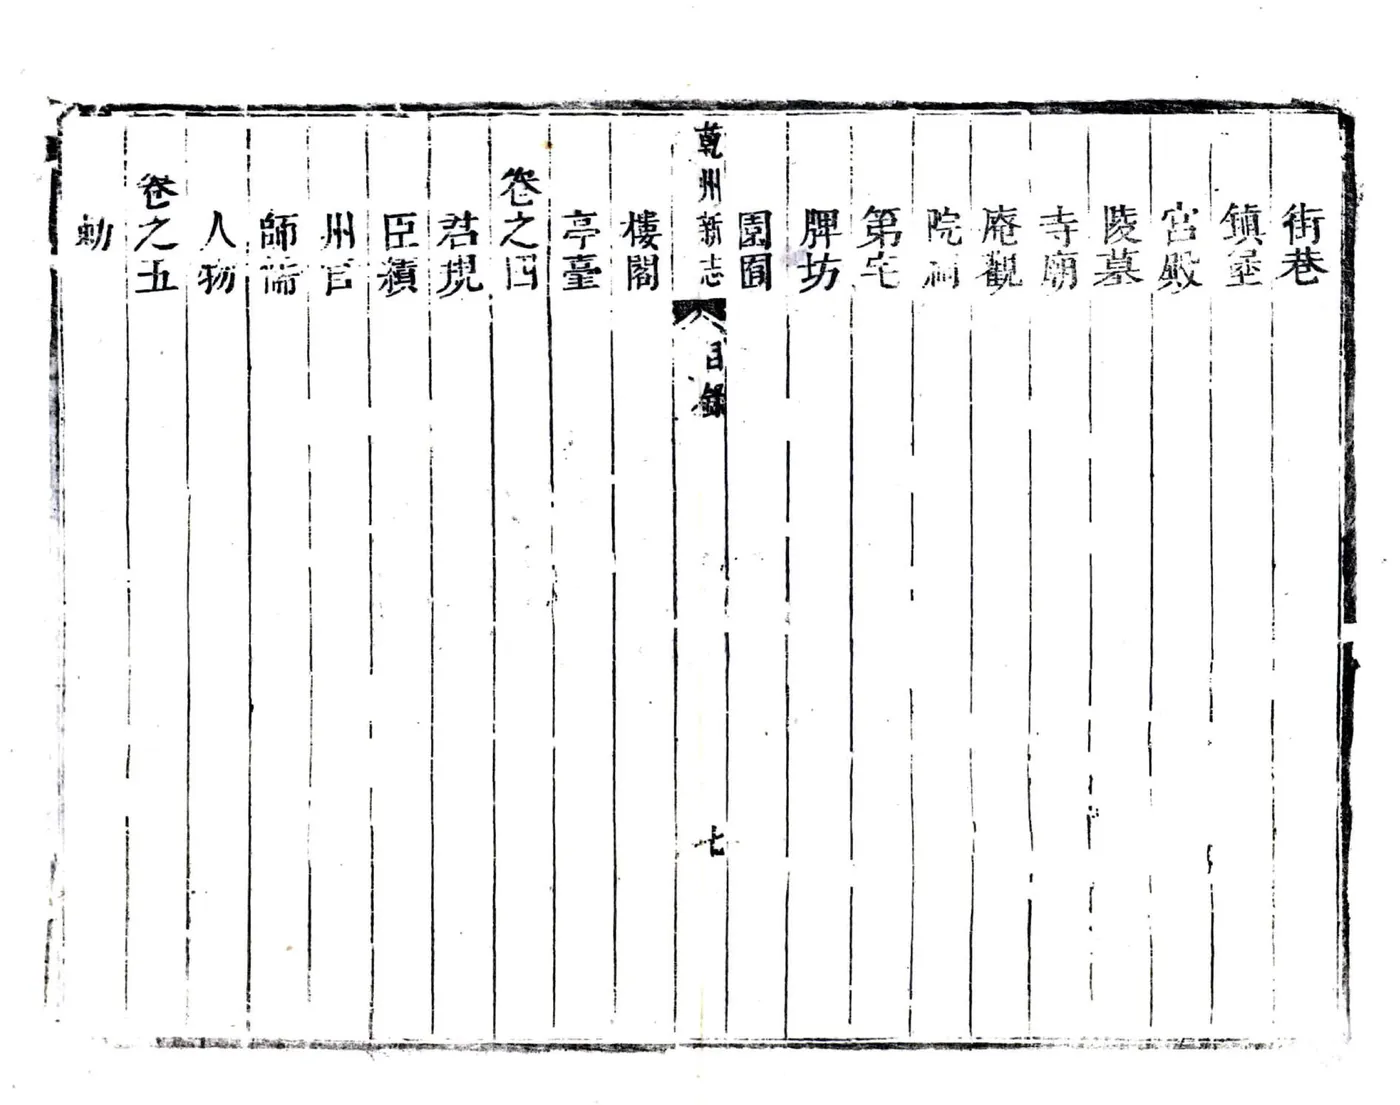 街巷
鎮堡
宮殿
陵墓
寺廟
庵觀
院祠
第宅
牌坊
園囿
乾州新志
目錄
七
樓閣
亭臺
卷之四
君現
臣績
州官
師儒
人物
卷之五
勅